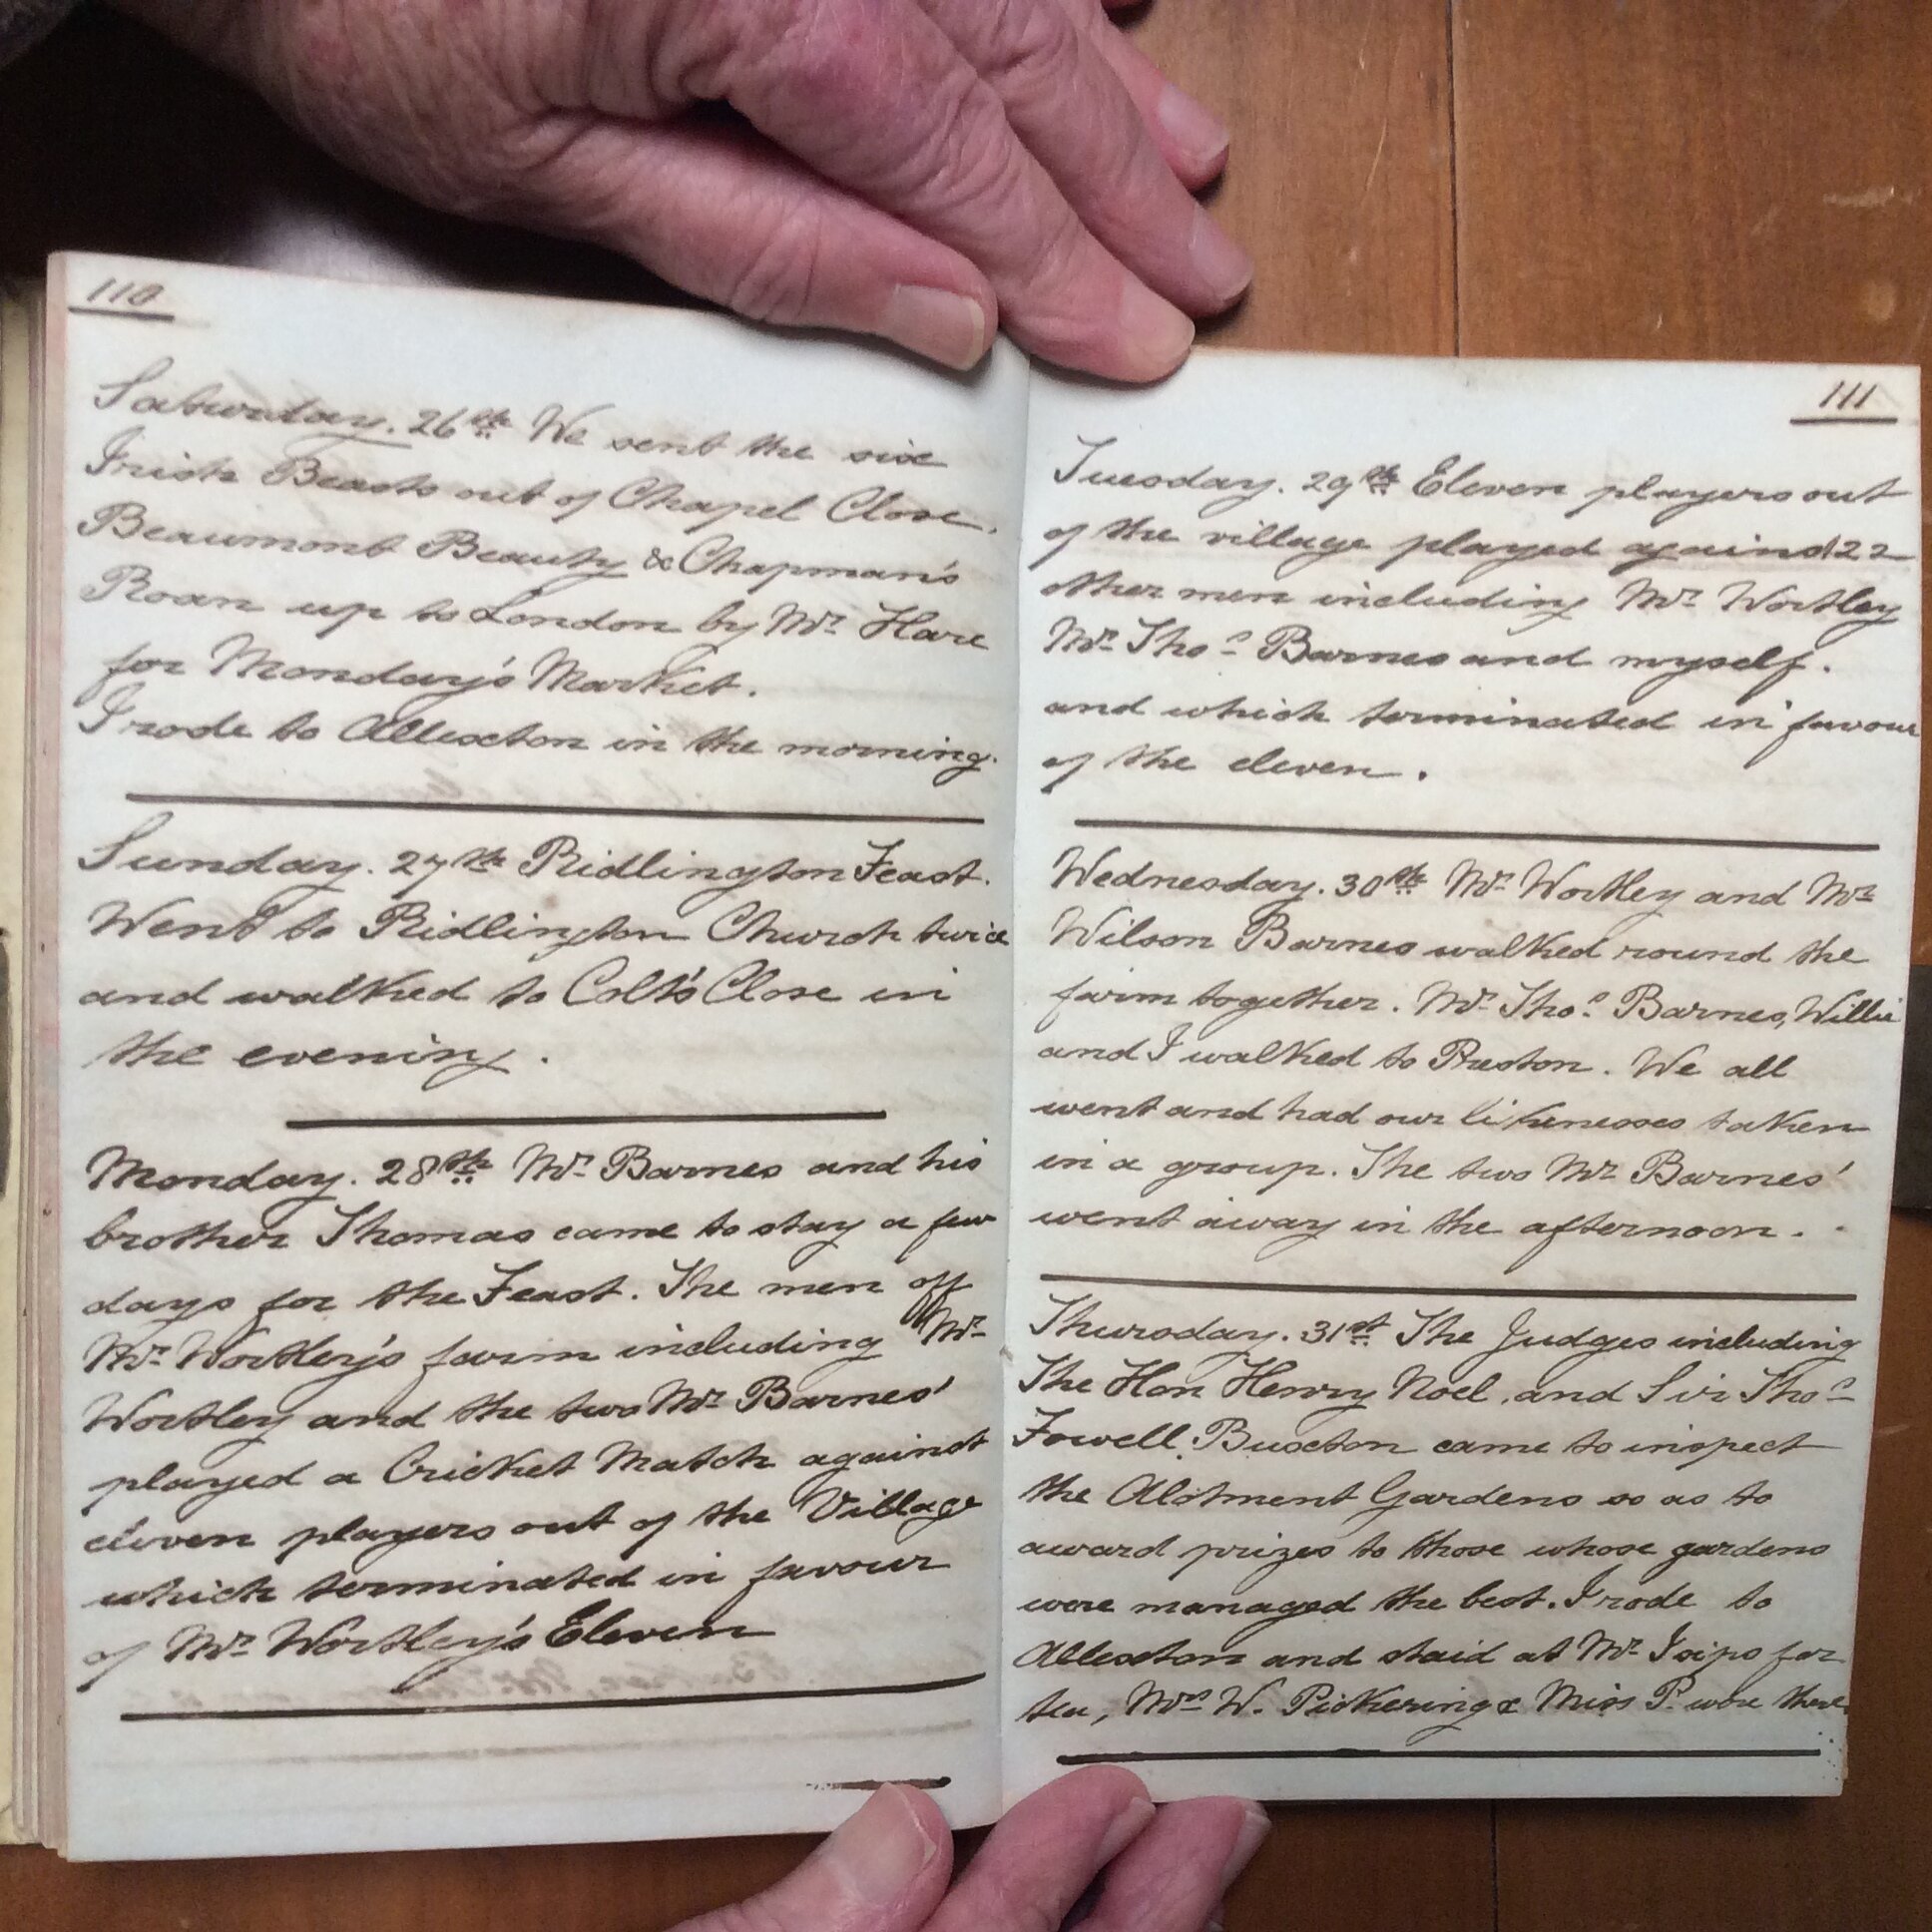 110
Saturday. 26th We sent the six
Irish Beasts out of Chapel Close,
Beaumont Beauty & Chapman's
Roan up to London by Mr. Hare
for Monday's Market.
I rode to Allexton in the morning.
Sunday. 27th Ridlington Feast.
Went to Ridlington Church twice
and walked to Colt's Close in
the evening.
Monday. 28th Mr. Barnes and his
brother Thomas came to stay a few
days for the Feast. The men off
Mr. Wortley's farm including Mr.
Wortley and the two Mr. Barnes'
played a Cricket Match against
eleven players out of the Village
which terminated in favour
of Mr. Wortley's Eleven
111
Tuesday. 29th Eleven players out
of the village played against 22
other men including Mr. Wortley
Mr. Thos. Barnes and myself.
and which terminated in favour
of the eleven.
Wednesday. 30th Mr. Wortley and Mr.
Wilson Barnes walked round the
farm together. Mr. Thos. Barnes, Willie
and I walked to Preston. We all
went and had our likenesses taken
in a group. The two Mr. Barnes'
went away in the afternoon.
Thursday. 31st The Judges including
The Hon Henry Noel, and Sir Thos.
Fowell Buxton came to inspect
the Alotment Gardens so as to
award prizes to those whose gardens
were managed the best. I rode to
Allexton and staid at Mr. for
tea, Mrs. W. Pickering & Miss P. were there